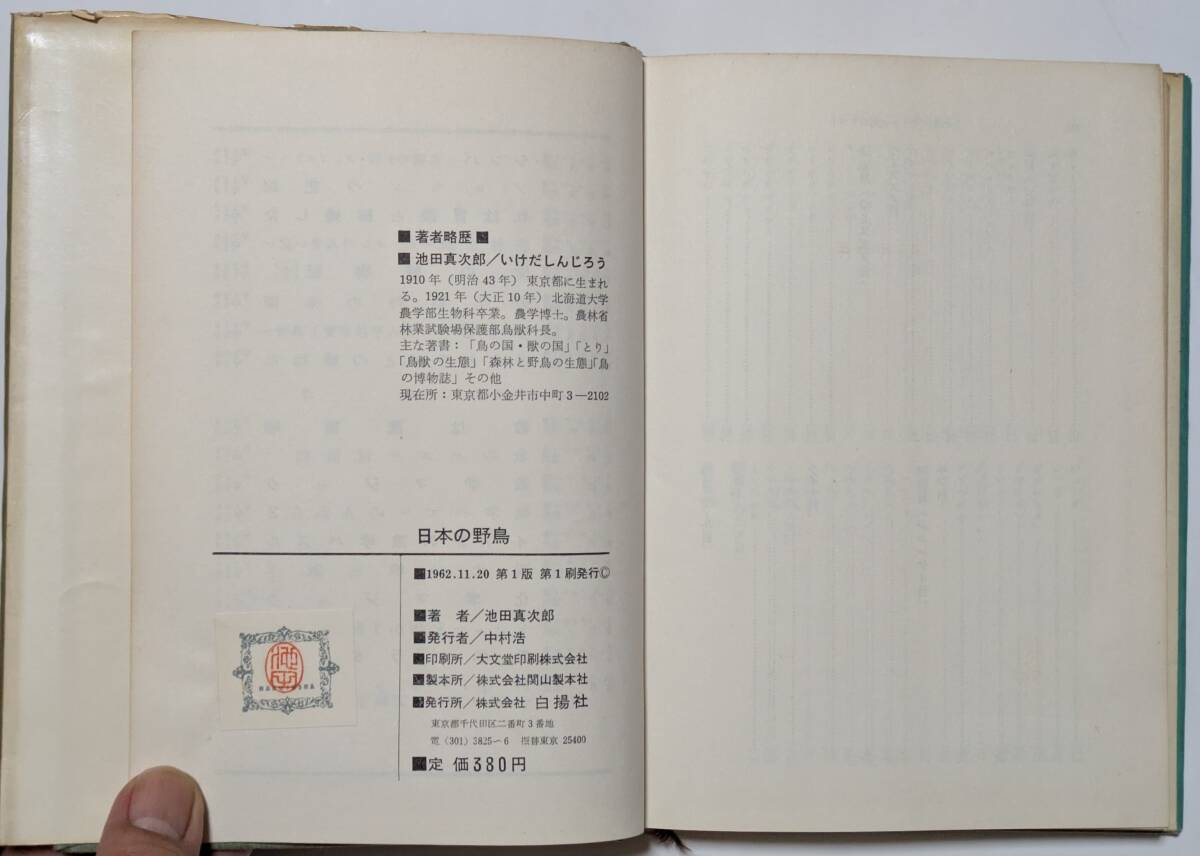 ■著者略歴■
■池田真次郎/いけだしんじろう
1910年(明治43年) 東京都に生まれ
る。1921年(大正10年) 北海道大学
農学部生物科卒業。農学博士。農林省
林業試験場保護部鳥獣科長。
主な著書:「鳥の国・獣の国」「とり」
「鳥獣の生態」「森林と野鳥の生態」「鳥
の博物誌」その他
現在所:東京都小金井市中町3—2102
日本の野鳥
■1962.11.20 第1版 第1刷発行©
■著 者/池田真次郎
■発行者/中村浩
■印刷所/大文堂印刷株式会社
■製本所/株式会社関山製本社
■発行所/株式会社 白揚社
東京都千代田区二番町3番地
電(301)3825〜6 振替東京 25400
■定 価380円